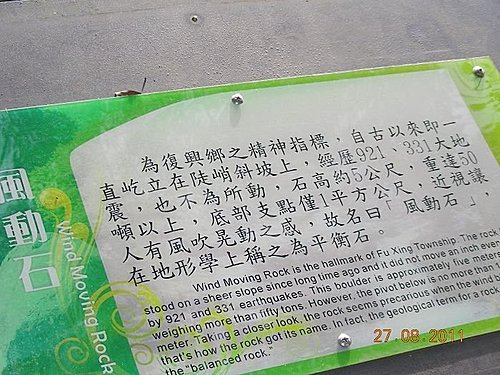 風動石
Wind Moving Rock
為復興鄉之精神指標，自古以來即一
直屹立在陡峭斜坡上，經歷921、331大地
震，也不為所動，石高約5公尺，重達50
噸以上，底部支點僅1平方公尺，近視讓
人有風吹晃動之感，故名曰「風動石」，
在地形學上稱之為平衡石。
Wind Moving Rock is the hallmark of Fu Xing Township. The rock
stood on a sheer slope since long time ago and it did not move an inch even
by 921 and 331 earthquakes. This boulder is approximately five meters
weighing more than fifty tons. However, the pivot below is no more than
meter. Taking a closer look, the rock seems precarious when the wind
that's how the rock got its name. In fact, the geological term for a rock
the "balanced rock."
27.08.2011